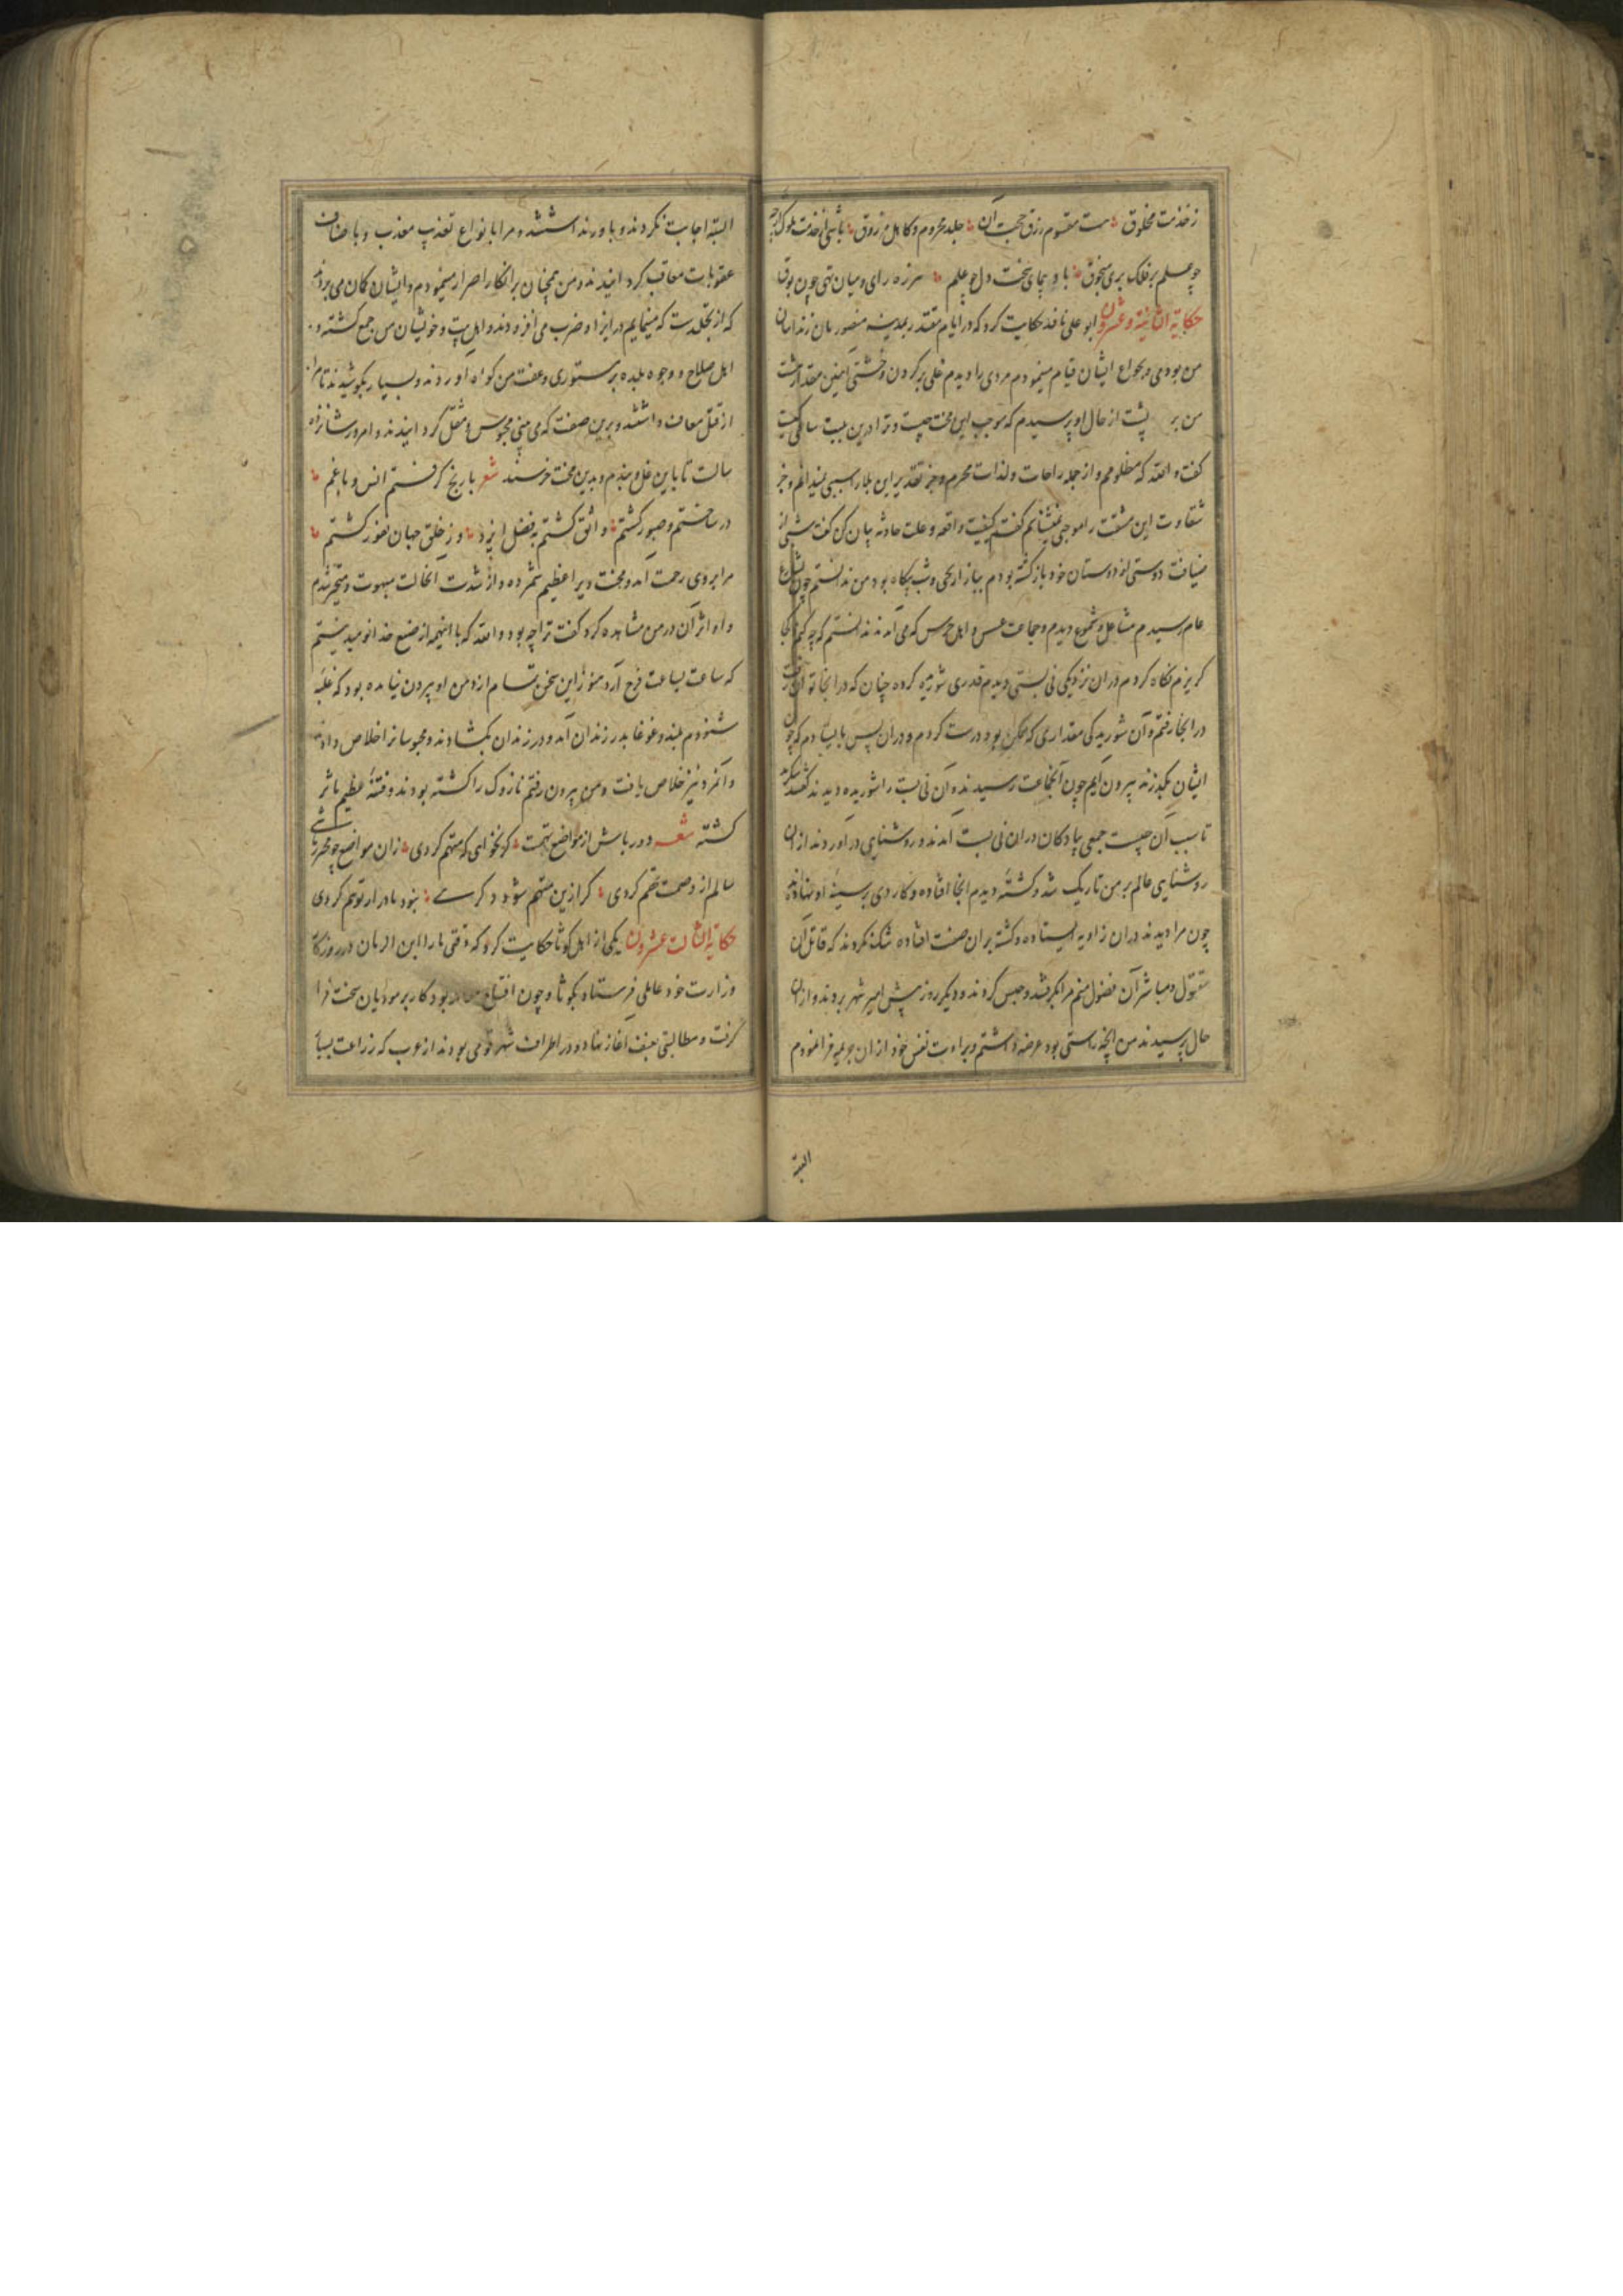 ز خدمت مخلوق هست مقسوم رزق حجت آن جلد محروم و کاهل مرزوق باشی از خدمت ملوک
چو علم بر فلک بری منجوق باد پیمای سخت دل چو علم هرزه رای و میان تهی چون بوق
حکایة الثانیة و عشرون ابو علی ناقد حکایت کرد که در ایام مقتدر بمدینه منصور بان زندانبان
من بودمی و بحوایج ایشان قیام مینمودم مردی را دیدم غلی بر گردن و خشتی آهنین مقدار شصت
من بر پشت از حال او پرسیدم که موجب این محنت چیست و ترا درین بیت ساکن کیست
گفت والله که مظلومم و از جمله راحات و لذات محروم و جز تقدیر این بلا را سببی نمیدانم و جز
شقاوت این مشقت را موجبی نمیشناسم گفتم کیفیت واقعه و علت حادثه بیان کن گفت شبی از
ضیافت دوستی از دوستان خود بازگشته بودم ببازار یحیی و شب بیگاه بود من ندانستم چون بشارع
عام رسیدم مشاعل و شموع دیدم و جماعت عسس و اهل حرس که می آمدند ندانستم که چه کنم و کجا
گریزم نگاه کردم در آن نزدیکی نی بستی دیدم قدری شوریده کرده چنان که در آنجا توان رفت
در آنجا رفتم و آن شوریدگی مقداری که ممکن بود درست کردم و در آن پس بایستادم که چون
ایشان بگذرند بیرون آیم چون آنجماعت رسیدند و آن نی بست را شوریده دیدند گفتند بنگرید
تا سبب آن چیست جمعی پیادگان در آن نی بست آمدند و روشنایی در آوردند از آن
روشنایی عالم بر من تاریک شد و کشته دیدم آنجا افتاده و کاردی بر سینه او نهاده
چون مرا دیدند در آن زاویه ایستاده و کشته بر آن صفت افتاده شک نکردند که قاتل آن
مقتول و مباشر آن فضول منم مرا بگرفتند و حبس کردند و دیگر روز پیش امیر شهر بردند و از آن
حال پرسیدند من آنچه راستی بود عرضه داشتم و براءت نفس خود از آن جریمه فرا نمودم
البته
البته اجابت نکردند و باور نداشتند و مرا بانواع تعذیب معذب و باصناف
عقوبات معاقب گردانیدند و من همچنان بر انکار اصرار مینمودم و ایشان گمان می بردند
که از تجلدست که مینمایم در ایذا و ضرب می افزودند و اهل بیت و خویشان من جمع گشته و
اهل صلاح و وجوه بلده بر مستوری و عفت من گواه آوردند و بسیار بکوشیدند تا مرا
از قتل معاف داشتند و برین صفت که می بینی محبوس و مثقل گردانیدند و امروز شانزده
سالست تا باین غل و بندم و بدین محنت خرسند شعر با رنج گرفتم انس و با غم
در ساختم و صبور گشتم واثق گشتم بفضل ایزد وز خلق جهان نفور گشتم
مرا بر وی رحمت آمد و محنت ویرا عظیم شمرده و از شدت آنحالت مبهوت و متحیر شدم
و او اثر آن در من مشاهده کرد گفت ترا چه بود والله که با اینهمه از صنع خدا نومید نیستم
که ساعت بساعت فرج آرد هنوز این سخن تمام از دهن او بیرون نیامده بود که غلبه
شنودم بلند و غوغا بدر زندان آمد و در زندان بگشادند و محبوسانرا خلاص دادند
و آنمرد نیز خلاص یافت و من بیرون رفتم نازوک را کشته بودند و فتنه عظیم ناشر
گشته شعر دور باش از مواضع تهمت گر نخواهی که متهم گردی زان مواضع چو محترز باشی
سالم از وصمت تهم گردی گر ازین متهم شود دگری نبود نادر ار تو هم گردی
حکایة الثالث عشرون یکی از اهل کوثا حکایت کرد که وقتی ما را ابن الریان در روزگار
وزارت خود عاملی فرستاد بکوثا و چون افتتاح بود کار بر مودیان سخت فرا
گرفت و مطالبتی بعنف آغاز نهاد و در اطراف شهر قومی بودند از عرب که زراعت بسیار